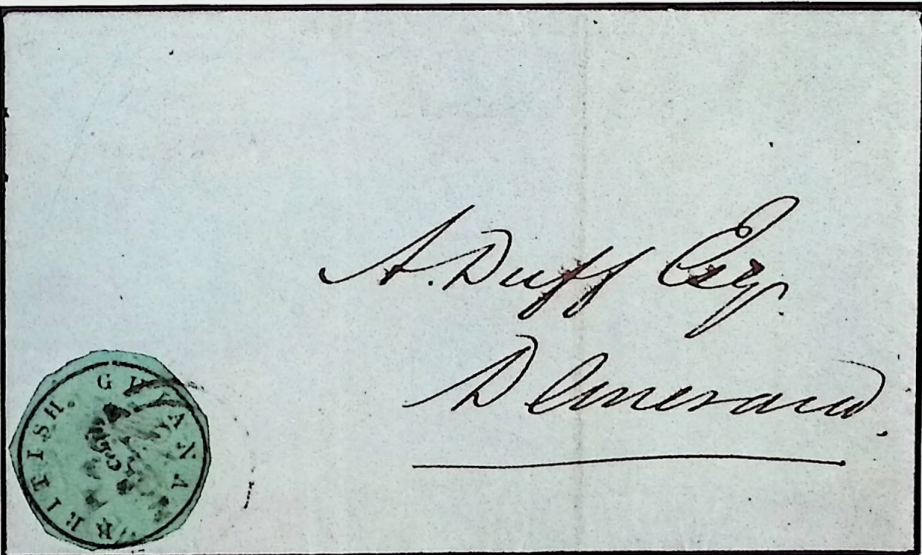 A. Duff Esq.
Demerara.
BRITISH. GUYANA